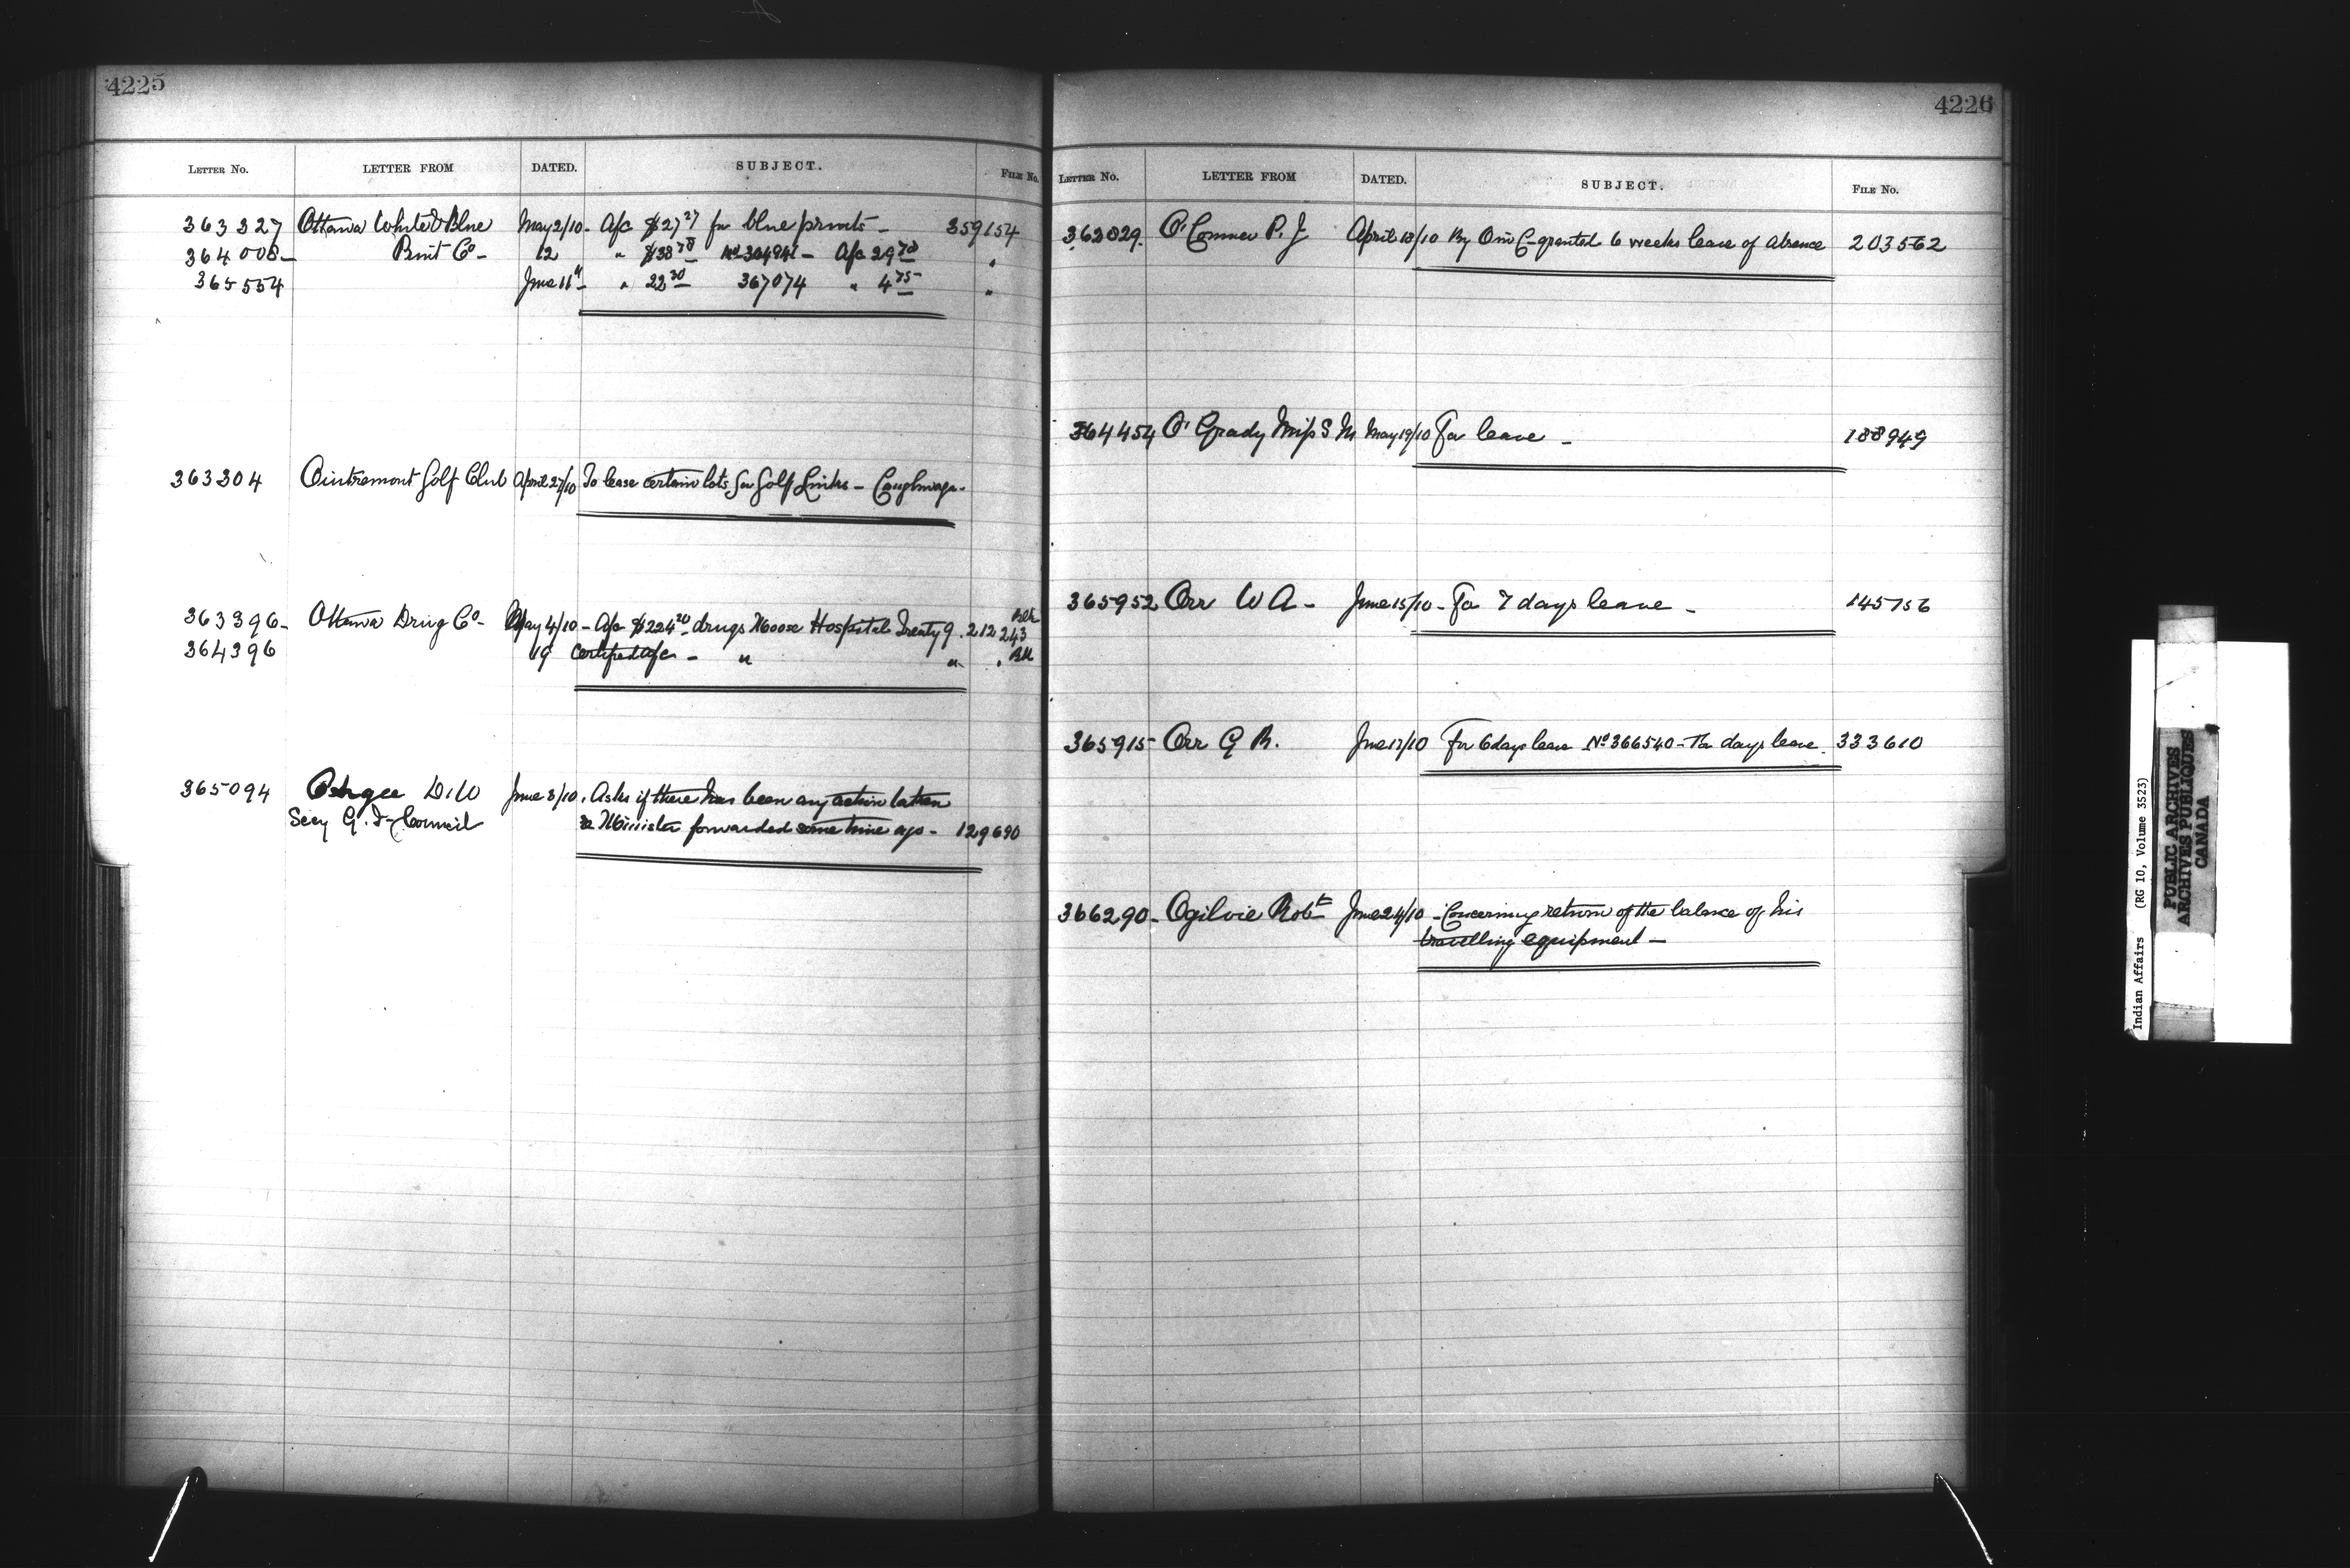 4225
LETTER NO. LETTER FROM DATED. SUBJECT. FILE NO.
363327 Ottawa White & Blue May 2/10 - A/c $27 27 for blue prints - 359154
364008 - Print Co - 12 " $38 78 No 364941 - A/c 29 70 "
365554 June 11 " 22 30 367074 " 4 75 "
363304 Outremont Golf Club April 27/10 To lease certain lots for Golf Links - Caughnwaga -
363396 - Ottawa Drug Co - May 4/10 - A/c $224 20 drugs Moose Hospital Treaty 9. 212 243
364396 19 Certified a/c - " " "
365094 D. W June 3/10. Asks if there has been any action taken
Secy G. I. Council re Minister forwarded some time ago - 129690
4226
LETTER NO. LETTER FROM DATED. SUBJECT. FILE NO.
362829. O'Connor P. J April 18/10 By O in C granted 6 weeks leave of absence 203562
364454 O'Grady Miss S M May 19/10 For leave - 188949
365952 Orr W A - June 15/10 - For 7 days leave - 145756
365915 Orr G R. June 17/10 For 6 days leave No 366540 - days leave. 333610
366290 - Ogilvie Robt June 24/10 - Concerning return of the balance of his
travelling equipment -
Indian Affairs (RG 10, Volume 3523)
PUBLIC ARCHIVES
ARCHIVES PUBLIQUES
CANADA